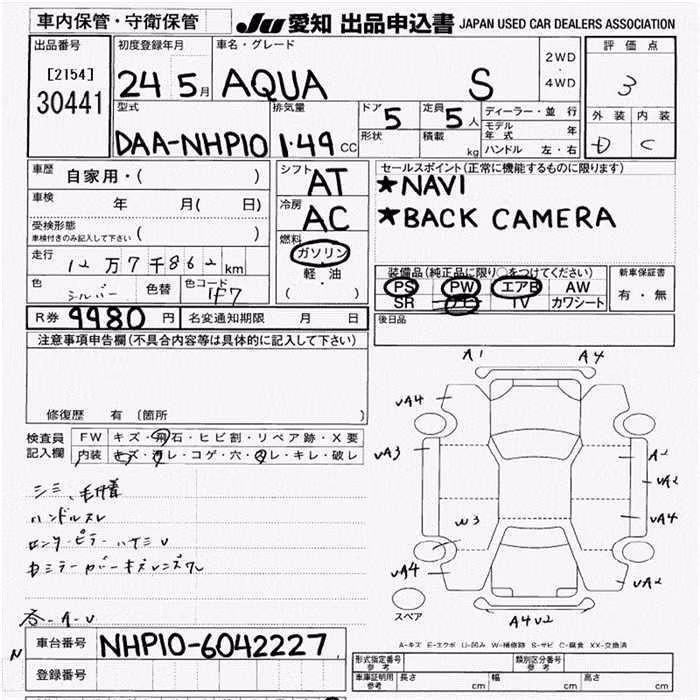 車内保管・守衛保管
JU 愛知 出品申込書 JAPAN USED CAR DEALERS ASSOCIATION
出品番号
[2154]
30441
初度登録年月
24 5月
車名・グレード
AQUA S
2WD
・
4WD
評価点
3
外装 内装
D C
型式
DAA-NHP10
排気量
1.49 CC
ドア 5
定員 5人
形状
積載 kg
ディーラー・並行
モデル年式 年
ハンドル 左・右
車歴 自家用・( )
車検 年 月( 日)
受検形態
車検付きのみ記入して下さい ( )
走行 12万7千862km
色 シルバー 色替 色コード 1F7
シフト AT
冷房 AC
燃料
ガソリン
軽・油
( )
セールスポイント(正常に機能するものに限ります)
★NAVI
★BACK CAMERA
装備品(純正品に限り○をつけてください)
PS PW エアB AW
SR ナビ TV カワシート
新車保証書
有・無
後日品
R券 9980 円 名変通知期限 月 日
注意事項申告欄(不具合内容等は具体的に記入して下さい)
修復歴 有 〔箇所 〕
検査員
記入欄
FW キズ・飛石・ヒビ割・リペア跡・X要
内装 キズ・汚レ・コゲ・穴・スレ・キレ・破レ
シミ、毛付着
ハンドルスレ
A1 A4
uA4
uA3 A2
uA2
W3 uA4
uA4 uA2
A4U2
スペア
各-A-U
A-キズ E-エクボ U-凹み W-補修跡 S-サビ C-腐食 XX-交換済
N
車台番号 NHP10-6042227
登録番号
形式指定番号
参考
類別区分番号
参考
車庫証明用
参考
長さ cm 幅 cm 高さ cm